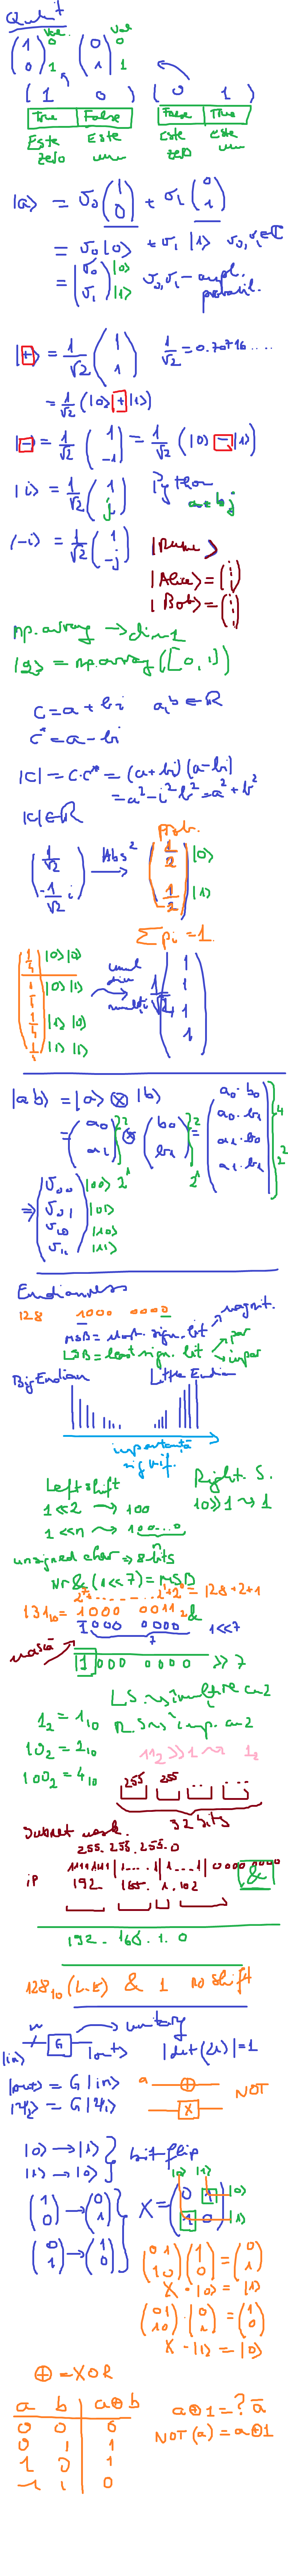 Qubit
(1 0) Val 0 1 (0 1) Val 0 1
( 1 0 ) ( 0 1 )
True False False True
Este zero Este un Este zero Este un
|a> = σ₀ (1 0) + σ₁ (0 1)
= σ₀ |0> + σ₁ |1> σ₀, σ₁ ∈ ℂ
= (σ₀ σ₁) |0> |1> σ₀, σ₁ - ampl. probabil.
|+> = 1/√2 (1 1) 1/√2 = 0.70716....
= 1/√2 (|0> + |1>)
|-> = 1/√2 (1 -1) = 1/√2 (|0> - |1>)
|i> = 1/√2 (1 j) Python a+bj
|-i> = 1/√2 (1 -j) |Nume>
|Alice> = (⋮)
|Bob> = (⋮)
np.array → dim=1
|q> = np.array([0, 1])
c = a + bi a,b ∈ R
c* = a - bi
|c| = c·c* = (a+bi)(a-bi)
= a² - i²b² = a² + b²
|c| ∈ R
Prob.
(1/√2 -1/√2 i) |Abs² → (1/2 1/2) |0> |1>
Σ pᵢ = 1
(1/4 1/4 1/4 1/4) |0>|0> |0>|1> |1>|0> |1>|1> 1/√4 (1 1 1 1)
|ab> = |a> ⊗ |b>
= (a₀ a₁) 2 2¹ ⊗ (b₀ b₁) 2 2¹ = (a₀·b₀ a₀·b₁ a₁·b₀ a₁·b₁) 4 2²
⇒ (σ₀₀ σ₀₁ σ₁₀ σ₁₁) |00> |01> |10> |11>
Endianness
128 1000 0000 magnit.
MSB = most. sign. bit
LSB = least sign. bit par impar
Big Endian Little Endian
importanță signif.
Left shift Right. S.
1<<2 → 100 10>>1 → 1
1<<n → 100...0 n
unsigned char → 8 bits
Nr & (1<<7) = MSB
2⁷ 2¹+2⁰ = 128+2+1
131₁₀ = 1000 0011₂ &
1000 0000 7 1<<7
mască 1000 0000 >> 7
L.S. → înmulțire cu 2
1₂ = 1₁₀ R.S → împ. cu 2
10₂ = 2₁₀ 11₂ >> 1 → 1₂
100₂ = 4₁₀
255 255 .. ...
32 bits
Subnet mask.
255. 255. 255. 0
11111111 | 1....1 | 1...1 | 0000 0000
IP 192 168. 1. 102 &
192. 168. 1. 0
128₁₀ & 1 no shift
n G unitary
|in> |out> |det(U)| = 1
|out> = G |in> a ⊕
|ψ₂> = G |ψ₁> X NOT
|0> → |1> bit flip
|1> → |0> |0> |1>
(1 0) → (0 1) X = (0 1 1 0) |0> |1>
(0 1) → (1 0) (0 1 1 0) (1 0) = (0 1)
X · |0> = |1>
(0 1 1 0) · (0 1) = (1 0)
X · |1> = |0>
⊕ = XOR
a b a⊕b a⊕1 = ? ā
0 0 0 NOT(a) = a⊕1
0 1 1
1 0 1
1 1 0